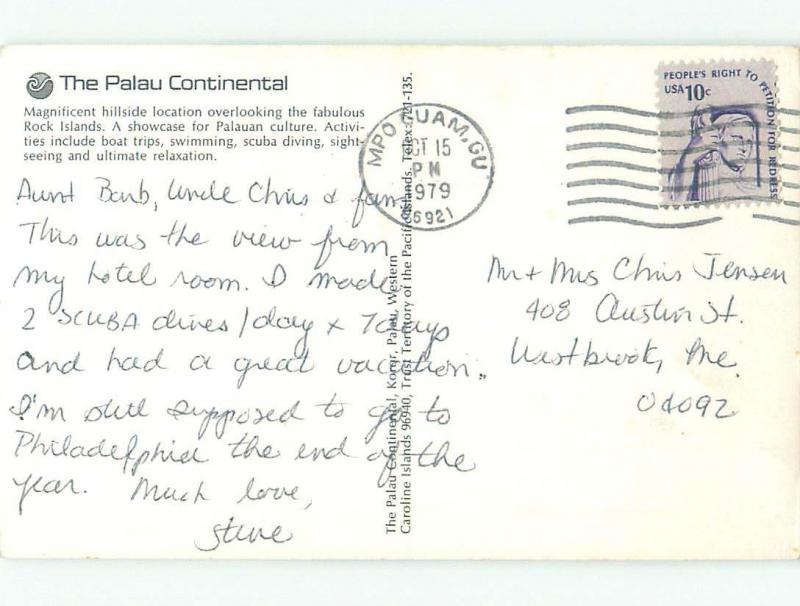 The Palau Continental
Magnificent hillside location overlooking the fabulous
Rock Islands. A showcase for Palauan culture. Activi-
ties include boat trips, swimming, scuba diving, sight-
seeing and ultimate relaxation.
MPO GUAM, GU
OCT 15
PM
1979
96921
PEOPLE'S RIGHT TO PETITION FOR REDRESS
USA 10c
Aunt Barb, Uncle Chris & fam
This was the view from
my hotel room. I made
2 SCUBA dives/day x 7 days
and had a great vacation.
I'm still supposed to go to
Philadelphia the end of the
year. Much love,
Steve
The Palau Continental, Koror, Palau, Western
Caroline Islands 96940, Trust Territory of the Pacific Islands. Telex: 721-135.
Mr + Mrs Chris Jensen
408 Austin St.
Westbrook, Me.
04092